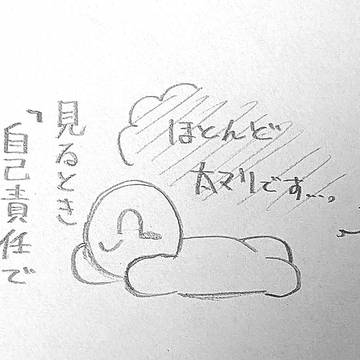 ほとんど
太ヌリです...。
見るとき
「自己責任で